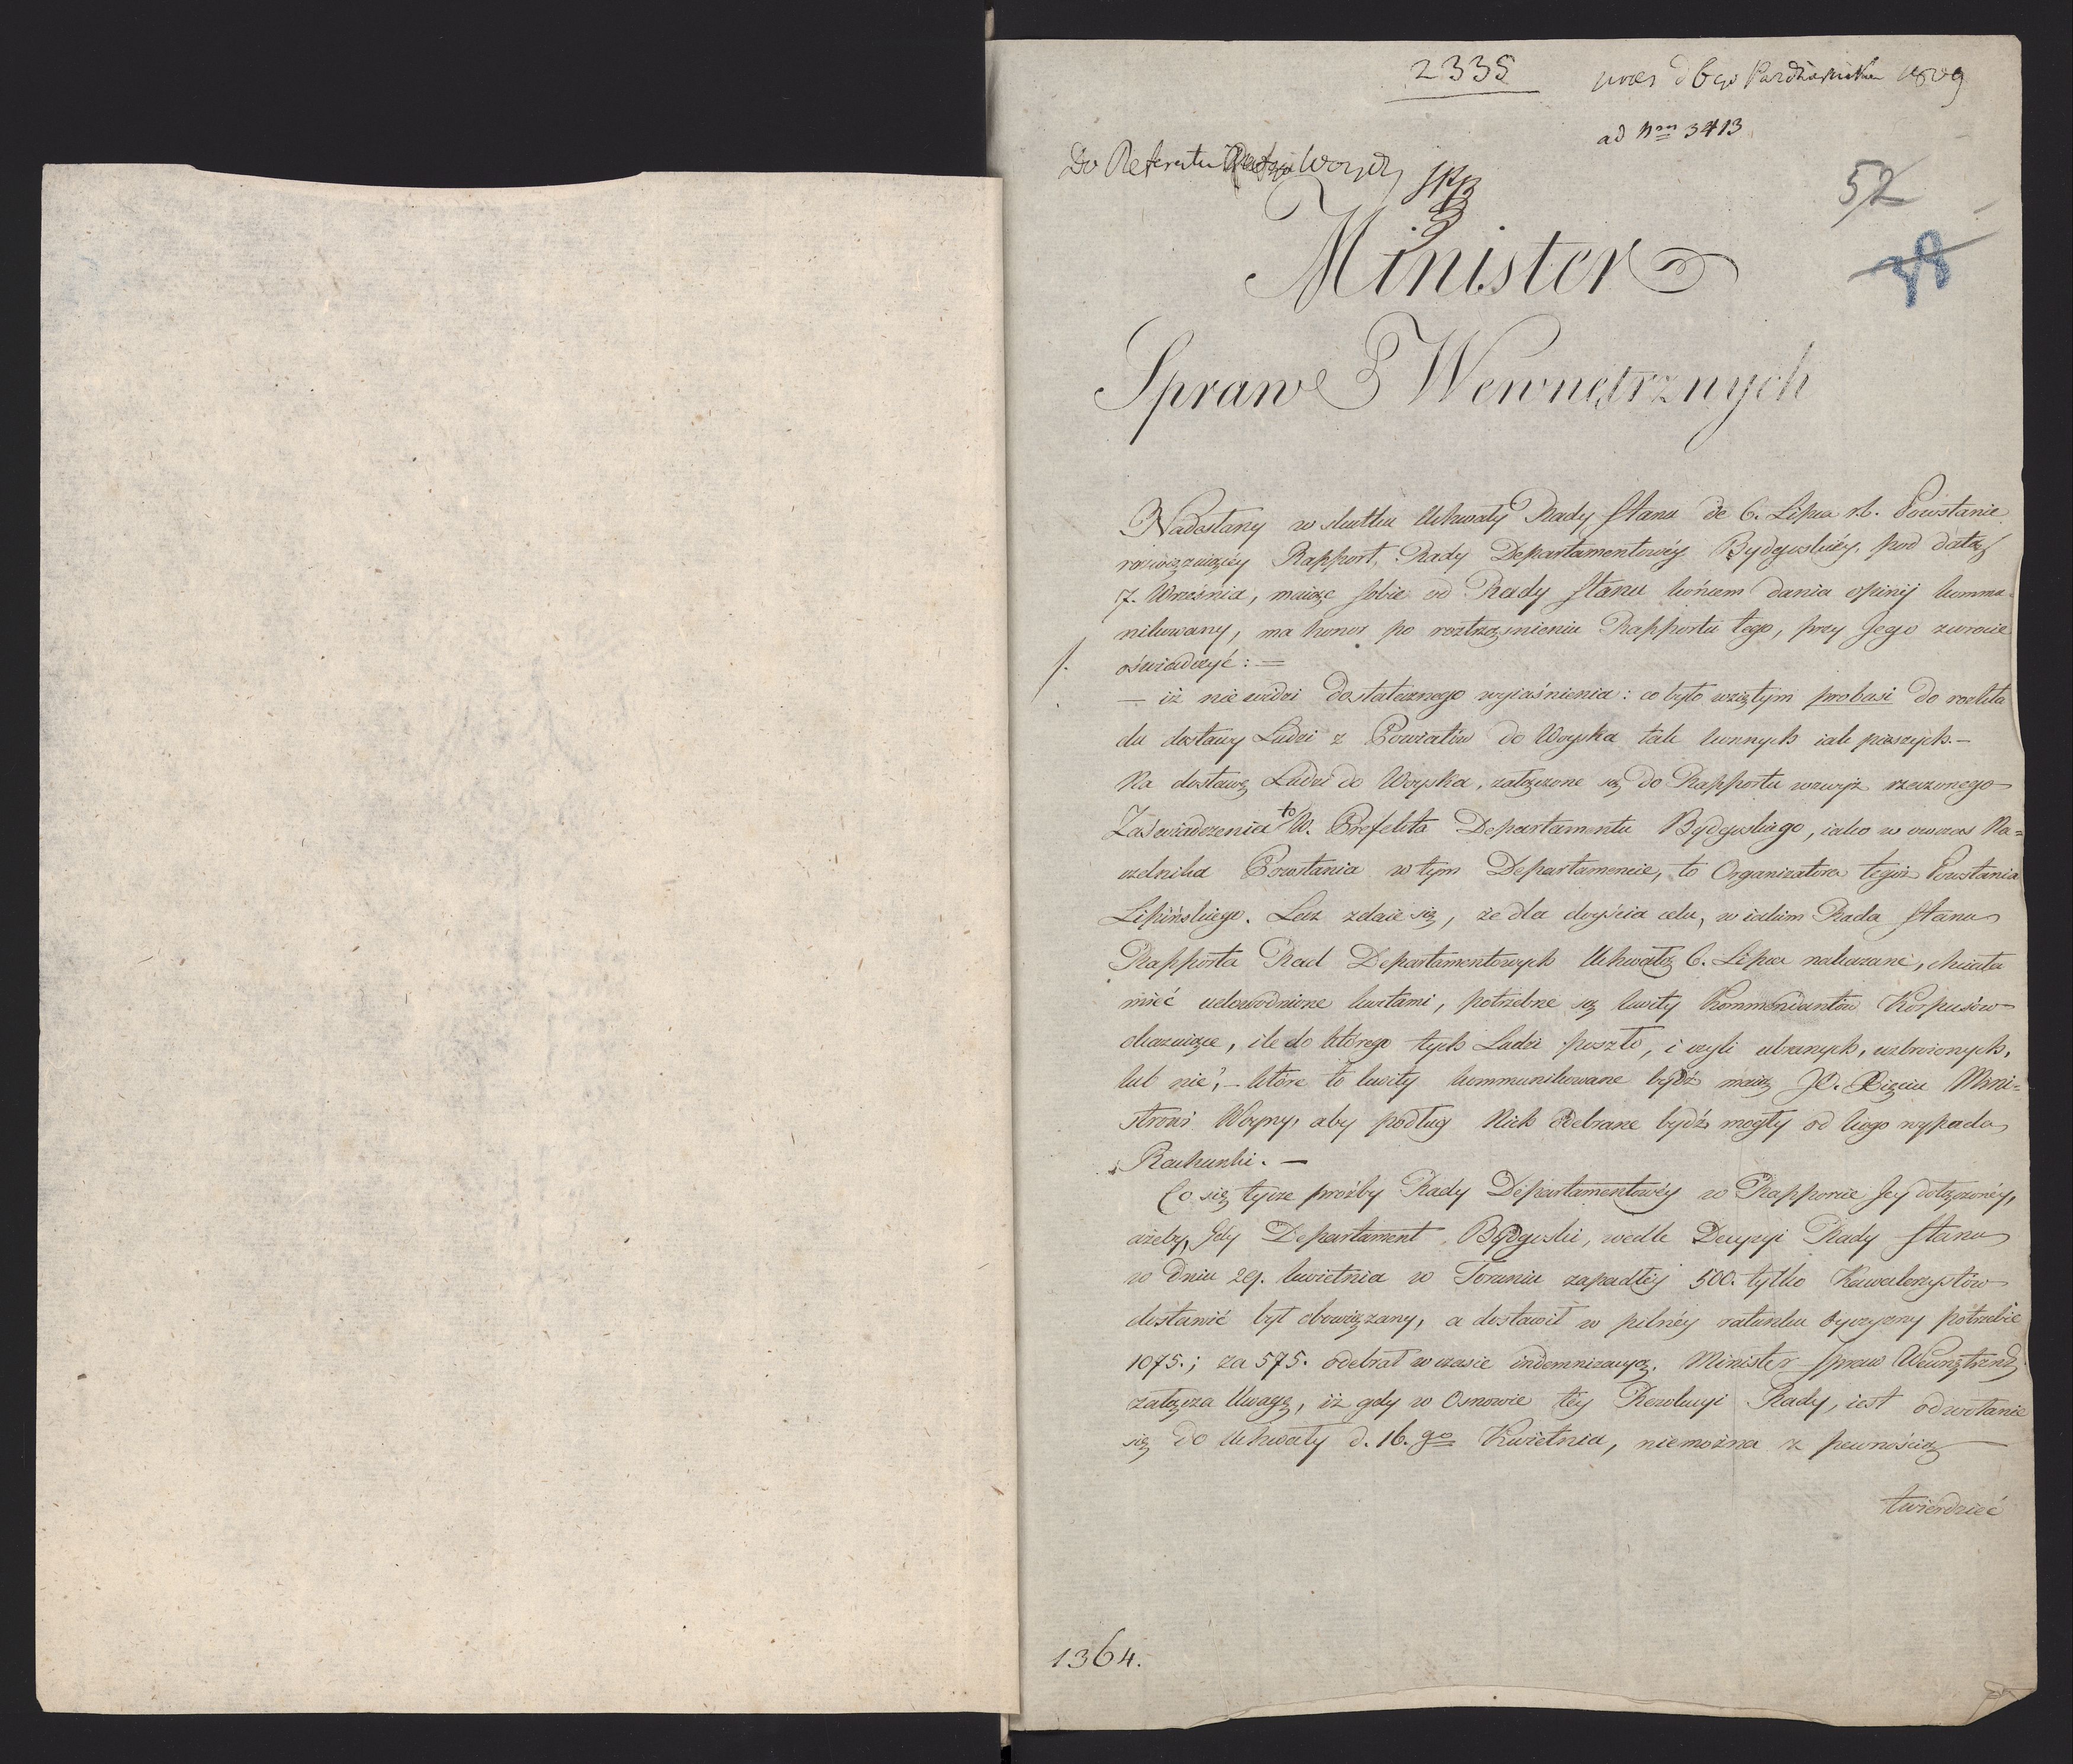 2335
d 6go Pazdziernika 1809
ad Nrm 3413
Do Referatu Woyny
52
38
Minister
Spraw Wewnętrznych
Nadesłany w skutku Uchwały Rady Stanu de 6. Lipca r.b. Powstanie
rozwiązuiącéy Rapport, Rady Departamentowéy Bydgoskiéy, pod datą
7. Września, maiąc sobie od Rady Stanu końcem dania opinij kommu-
nikowany, ma honor po roztrząśnieniu Rapportu tego, przy Jego zwrocie
oświadczyć: =
— iż nie widzi dostatecznego wyiaśnienia: co było wziętym pro basi do rozkła
du dostawy Ludzi z Powiatów do Woyska tak konnych iak pieszych. —
Na dostawę Ludzi do Woyska, załączone są do Rapportu wzwyż rzeczonego
Zaświadczenia to W. Prefekta Departamentu Bydgoskiego, iako w owczas Na=
czelnika Powstania w tym Departamencie, to Organizatora tegoż Powstania
Lipińskiego. Lecz zdaie się, że dla doyścia celu, w iakim Rada Stanu
Rapporta Rad Departamentowych Uchwałą 6. Lipca nakazane, chciała
mieć udowodnione kwitami, potrzebne są kwity Kommendantów Korpusów
okazuiące, ile do którego tych Ludzi poszło, i czyli ubranych, uzbroionych,
lub nie?, — które to kwity kommunikowane bydź maią JO. Xięciu Mini=
strowi Woyny, aby podług Nich odebrane bydź mogły od kogo wypada
Rachunki. —
Co się tycze proźby Rady Departamentowéy w Rapporcie Jey dołączonéy,
ażeby, gdy Departament Bydgoski, wedle Decyzyi Rady Stanu
w Dniu 29. kwietnia w Toruniu zapadłéy 500. tylko Kawalerzystów
dostawić był obowiązany, a dostawił w pilnéy ratunku oyczyzny potrzebie
1075.; za 575. odebrał w czasie indemnizacyą. Minister Spraw Wewnętrznch
załącza Uwagę, iż gdy w Osnowie téy Rezolucyi Rady, iest odwołanie
się do Uchwały d. 16.go Kwietnia, niemożna z pewnością
twierdzieć
1364.